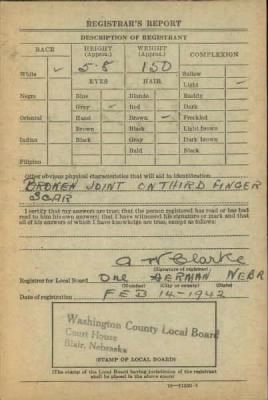 REGISTRAR'S REPORT
DESCRIPTION OF REGISTRANT
RACE HEIGHT (Approx.) WEIGHT (Approx.) COMPLEXION
White ✓ 5-8 150 Sallow
EYES HAIR Light ✓
Negro Blue Blonde Ruddy
Gray ✓ Red Dark
Oriental Hazel Brown ✓ Freckled
Brown Black Light brown
Indian Black Gray Dark brown
Bald Black
Filipino
Other obvious physical characteristics that will aid in identification
BROKEN JOINT ON THIRD FINGER
SCAR
I certify that my answers are true; that the person registered has read or has had
read to him his own answers; that I have witnessed his signature or mark and that
all of his answers of which I have knowledge are true, except as follows:
A W Clarke
(Signature of registrar)
Registrar for Local Board One HERMAN NEBR
(Number) (City or county) (State)
Date of registration FEB 14-1942
Washington County Local Board
Court House
Blair, Nebraska
(STAMP OF LOCAL BOARD)
(The stamp of the Local Board having jurisdiction of the registrant
shall be placed in the above space)